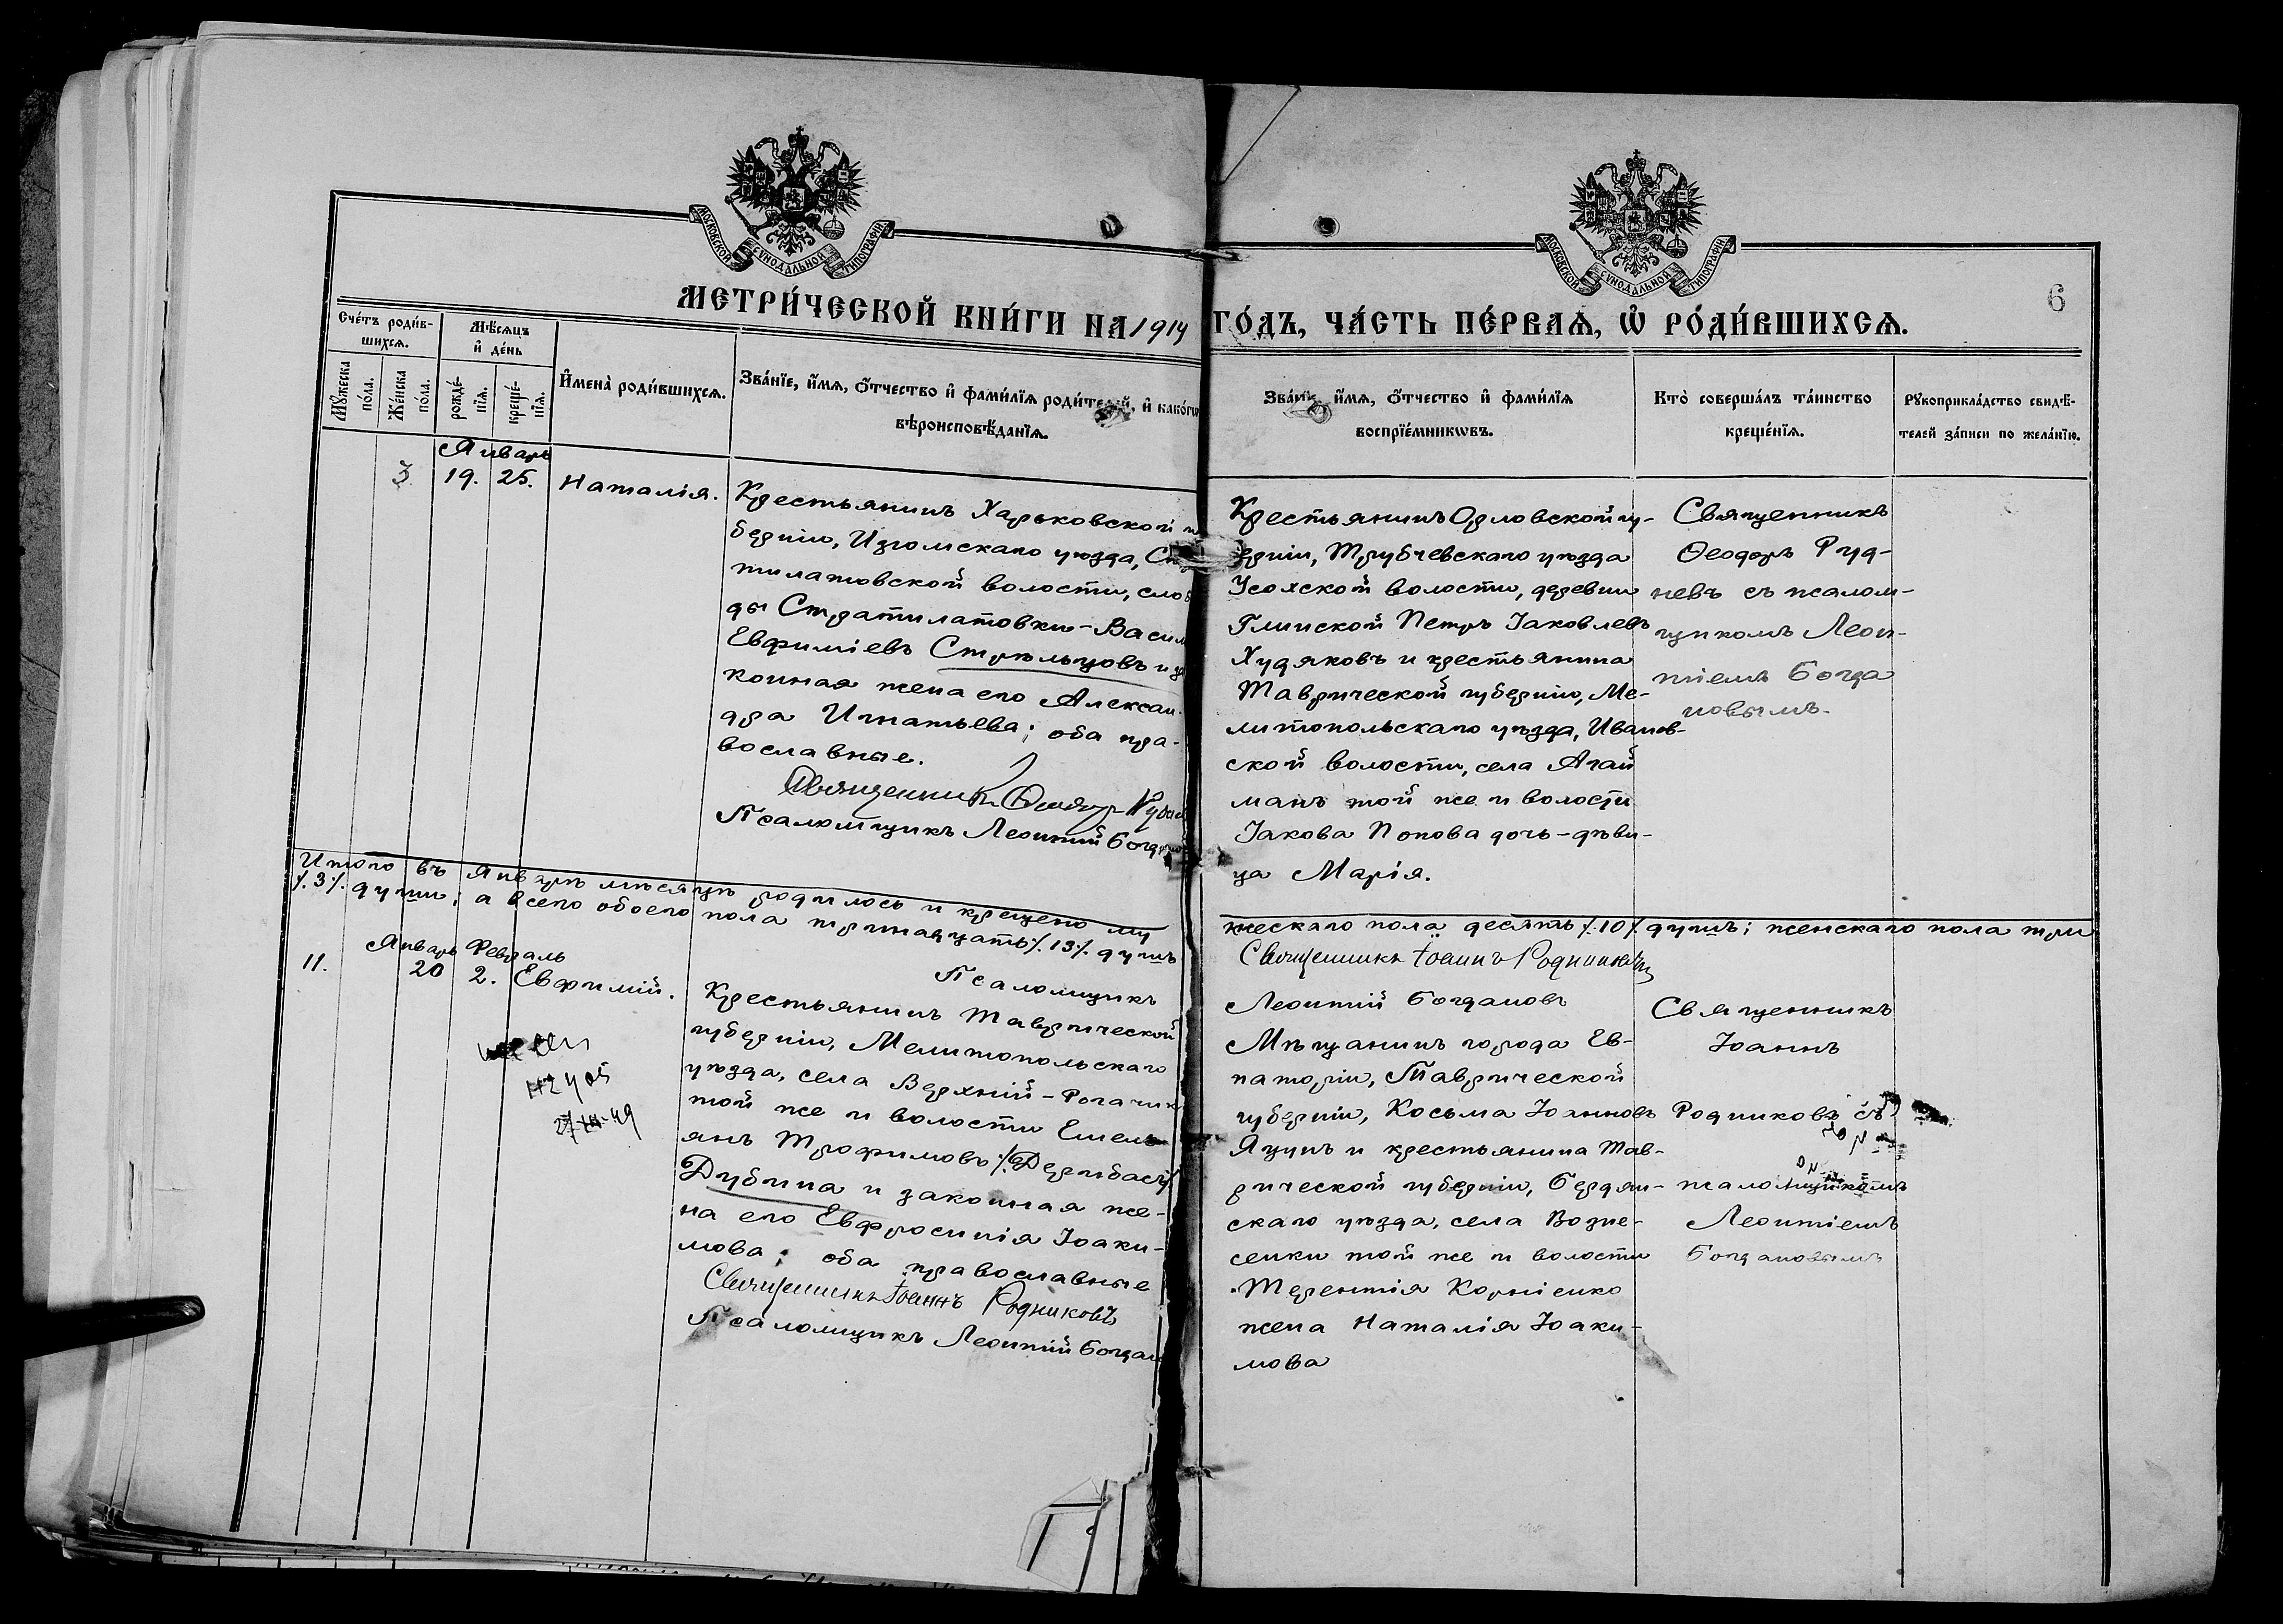 МОСКОВСКОЙ СѴНОДАЛЬНОЙ ТИПОГРАФІИ
МОСКОВСКОЙ СѴНОДАЛЬНОЙ ТИПОГРАФІИ
6
МЕТРИ́ЧЕСКОЙ КНИ́ГИ НА 1914 ГО́ДЪ, ЧА́СТЬ ПЕ́РВАѦ, Ѽ РО́ДИ́ВШИХСѦ.
Сче́тъ роди́в-
шихсѧ.
Мꙋжеска
по́ла.
Же́нска
по́ла.
Мѣ́сѧцъ
и҆ де́нь
рожде́-
нїѧ.
креще́-
нїѧ.
И҆мена̀ роди́вшихсѧ.
Зва́нїе, и҆́мѧ, ѻ҆́тчество и҆ фами́лїѧ роди́телей, и҆ како́гѡ
вѣроисповѣ́данїѧ.
Зва́нїе, и҆́мѧ, ѻ҆́тчество и҆ фами́лїѧ
воспрїе́мникѡвъ.
Кто̀ соверша́лъ та́инство
креще́нїѧ.
Рꙋкоприкла́дство свидѣ́-
телей за́писи по жела́нїю.
Январь
3. 19. 25. Наталія.
Крестьянинъ Харьковской
берніи, Изюмскаго уѣзда,
тилатовской волости, слоб
ды Стратилатовки - Васил
Евфиміевъ Стрѣльцовъ и за
конная жена его Алексан-
дра Игнатьева; оба пра-
вославные.
Священникъ Ѳеодоръ Рудн
Псаломщикъ Леонтій Богдано
Крестьянинъ Орловской гу-
берніи, Трубчевскаго уѣзда
Усохской волости, деревни
Глинской Петръ Іаковлевъ
Худяковъ и крестьянина
Таврической губерніи, Ме-
литопольскаго уѣзда, Иванов-
ской волости, села Агай
манъ той же и волости
Іакова Попова дочь - дѣви-
ца Марія.
Священникъ
Ѳеодоръ Руд-
невъ съ псалом-
щикомъ Леон-
тіемъ Богда
новымъ.
Итого въ январѣ мѣсяцѣ родилось и крещено му
жескаго пола десять ٪10٪ душъ; женскаго пола три
٪3٪ души; а всего обоего пола тринадцать ٪13٪ душъ
Священникъ Іоаннъ Родниковъ
Псаломщикъ
Леонтій Богдановъ
Январь Февраль
11. 20 2. Евфимій.
49
Крестьянинъ Таврической
губерніи, Мелитопольскаго
уѣзда, села Верхній - Рогачик
той же и волости Емель
янъ Трофимовъ ٪Дерибасъ٪
Дубина и законная же-
на его Евфросинія Іоаки-
мова; оба православные
Священникъ Іоаннъ Родниковъ
Псаломщикъ Леонтій Богдан
Мѣщанинъ города Ев-
паторіи, Таврической
губерніи, Косьма Іоанновъ
Яцунъ и крестьянина Тав-
рической губерніи, Бердян-
скаго уѣзда, села Возне-
сенки той же и волости
Терентія Корніенко
жена Наталія Іоаки-
мова
Священникъ
Іоаннъ
Родниковъ съ
псаломщикомъ
Леонтіемъ
Богдановымъ